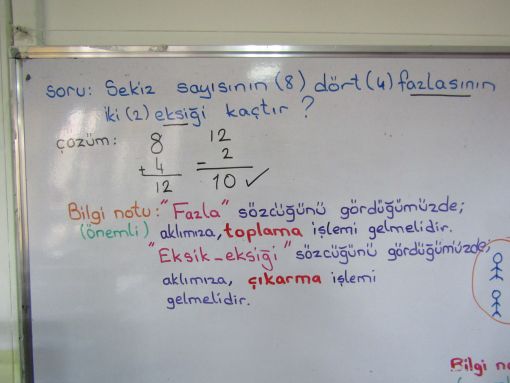 soru: Sekiz sayısının (8) dört (4) fazlasının
iki (2) eksiği kaçtır ?
çözüm: 8 12
+ 4 - 2
12 10 ✓
Bilgi notu: "Fazla" sözcüğünü gördüğümüzde;
(önemli) aklımıza, toplama işlemi gelmelidir.
"Eksik-eksiği" sözcüğünü gördüğümüzde;
aklımıza, çıkarma işlemi
gelmelidir.
Bilgi